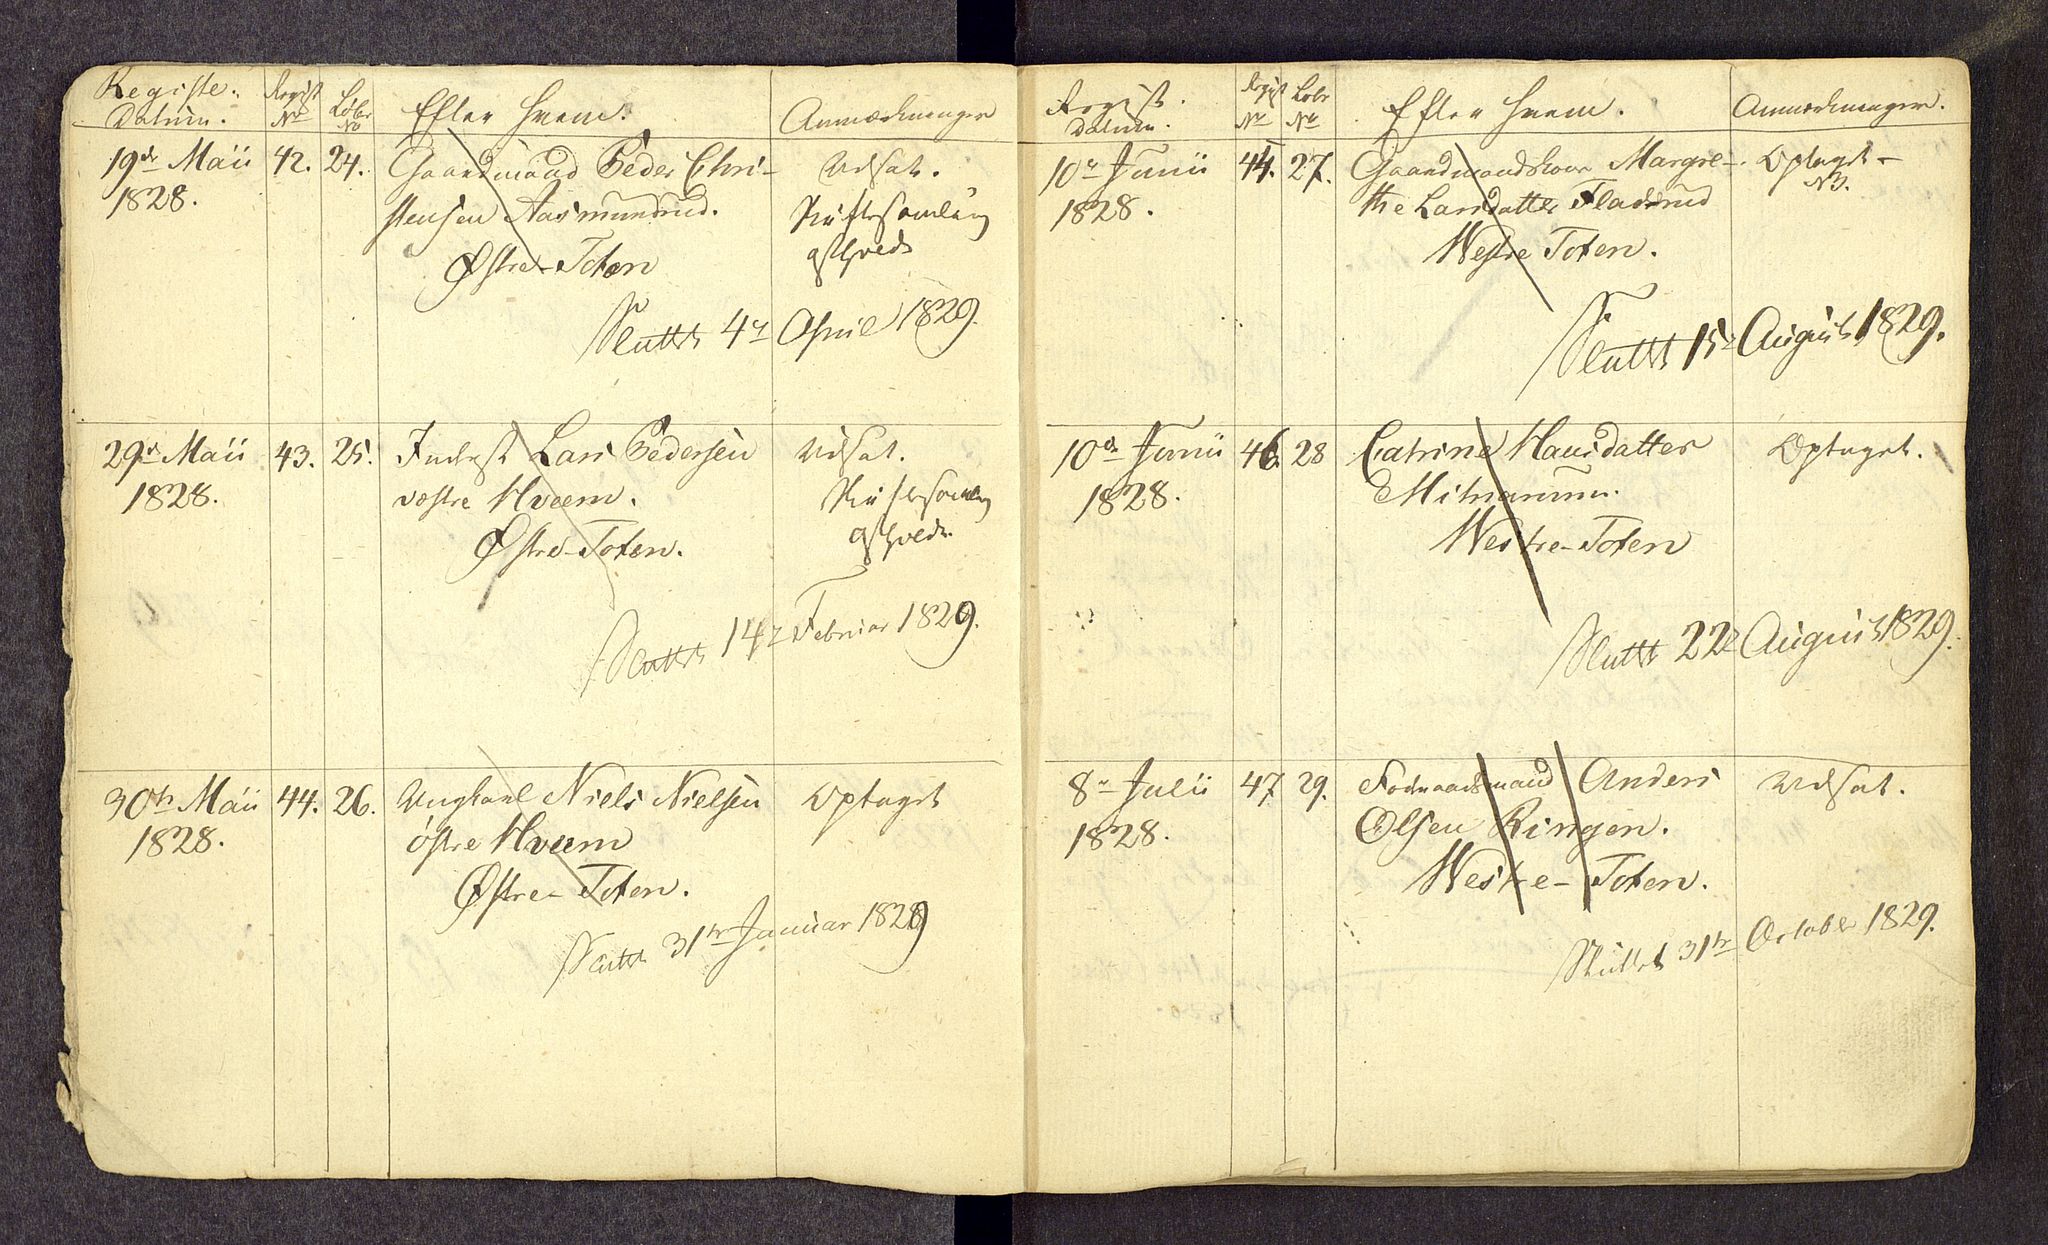 Registe.
Datum.
Regist
No
Løbe
No
Efter hvem.
Anmærkninger
19de Maii 42. 24. Gaardmand Peder Chri- Udsat.
1828. stensen Aasmundrud. Skiftesamling
Østre-Toten
Sluttet 4de April 1829.
29de Maii 43. 25. Inderst Lars Pedersen Udsat.
1828. vestre Hveem. Skiftesamling
Østre-Toten.
Sluttet 14de Februar 1829.
30te Maii 44. 26. Ungkarl Niels Nielsen Optaget
1828. østre Hveem
Østre-Toten.
Sluttet 31te Januar 1829
Regist.
Datum.
Regist
No
Løbe
No
Efter hvem.
Anmærkninger.
10de Junii 44. 27. Gaardmandskone Margre- Optaget-
1828. the Larsdatter Fladsrud NB.
Westre Toten.
Sluttet 15de August 1829.
10de Junii 46. 28 Catrine Hansdatter Optaget.
1828.
Westre-Toten
Sluttet 22de August 1829.
8de Julii 47 29. Føderaadsmand Anders Udsat.
1828. Olsen Ringen.
Westre-Toten.
Sluttet 31te October 1829.